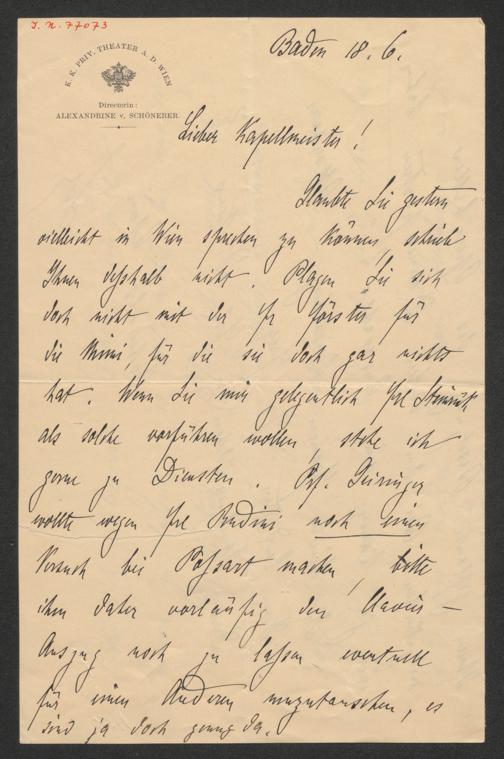 J. N. 77073
K. K. PRIV. THEATER A. D. WIEN
Directorin:
ALEXANDRINE v. SCHÖNERER.
Baden 18. 6.
Lieber Kapellmeister!
Glaubte Sie gestern
vielleicht in Wien sprechen zu können, schrieb
Ihnen deßhalb nicht. Plagen Sie sich
doch nicht mit der Fr Förster für
die Mimi, für die sie doch gar nichts
hat. Wenn Sie mir gelegentlich Frl
als solche vorführen wollen, stehe ich
gerne zu Diensten. Prof. Geiringer
wollte wegen Frl Bendini noch einen
Versuch bei Possart machen, bitte
ihm daher vorläufig den Clavier-
Auszug noch zu laßen eventuell
für einen Anderen umzutauschen, es
sind ja doch genug da.